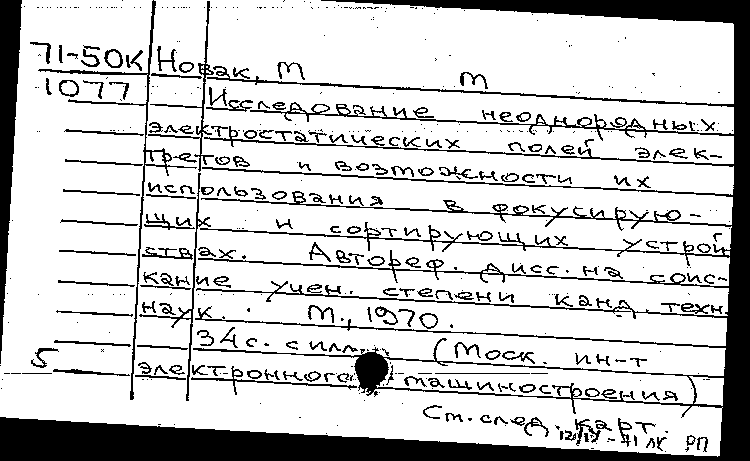 71-50К Новак, М М
1077 Исследование неоднородных
электростатических полей элек-
третов и возможности их
использования в фокусирую-
щих и сортирующих устрой
ствах. Автореф. дисс. на соис-
кание учен. степени канд. техн.
наук. М., 1970.
34с. с илл. (Моск. ин-т
5 электронного машиностроения)
См. след. карт.
12/IV-71 ЛК РП